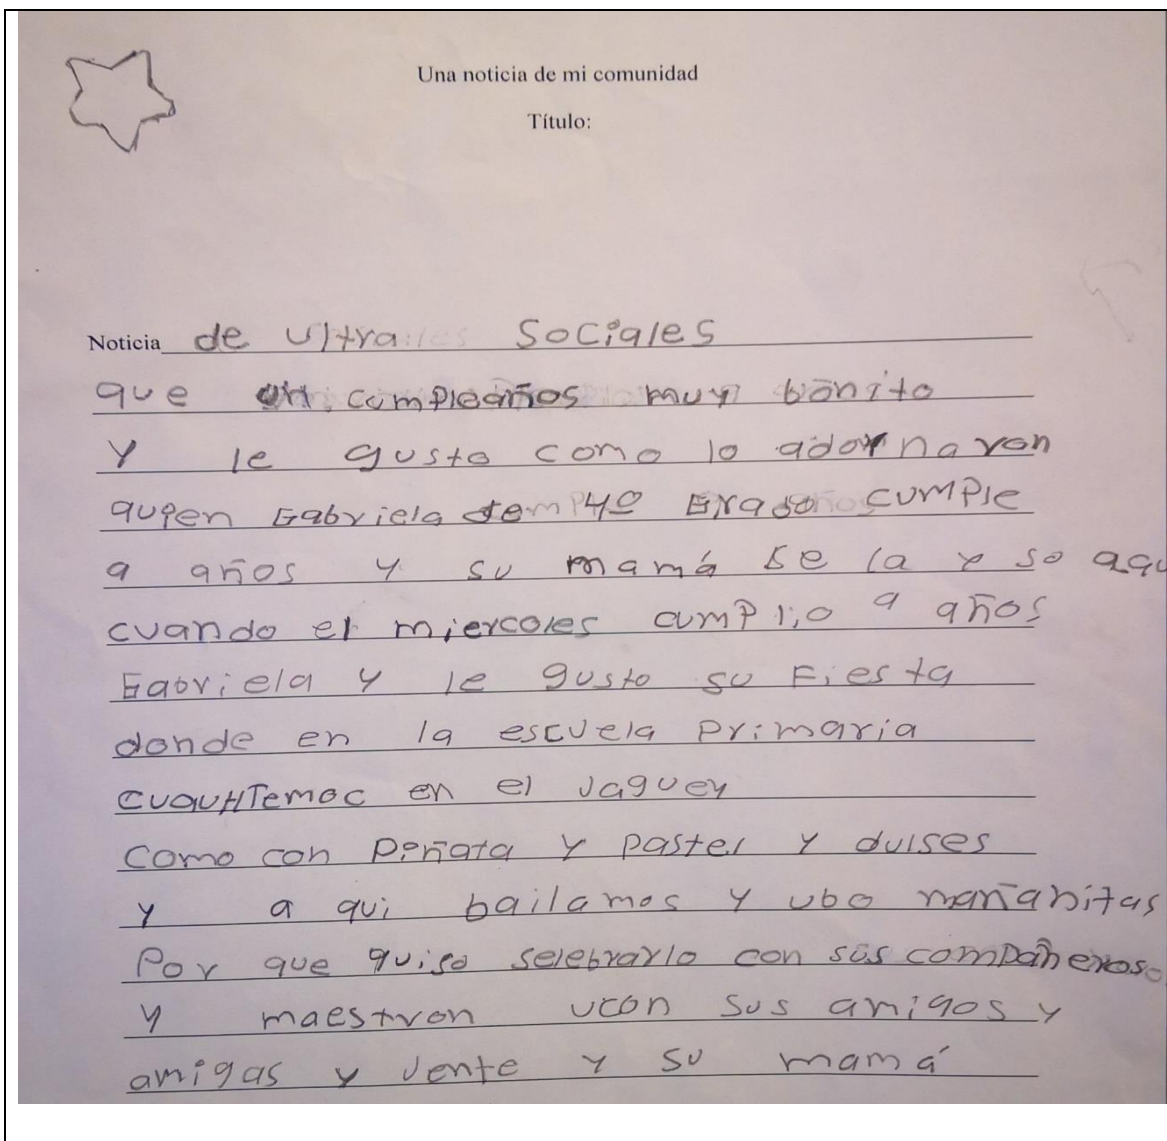 Una noticia de mi comunidad
Título:
Noticia de Ultra Sociales
que un cumpleaños muy bonito
y le gusto como lo adornaron
quien Gabriela 4º Grado cumple
9 años y su mamá se la y so aqu
cuando el miercoles cumplio 9 años
Gabriela y le gusto su Fiesta
donde en la escuela Primaria
CuauHTemoc en el Jaguey
Como con Piñata y Pastel y dulses
y a qui bailamos y ubo mañanitas
Por que quiso selebrarlo con sus compañeros
y maestron ucon sus amigos y
amigas y Jente y su mamá